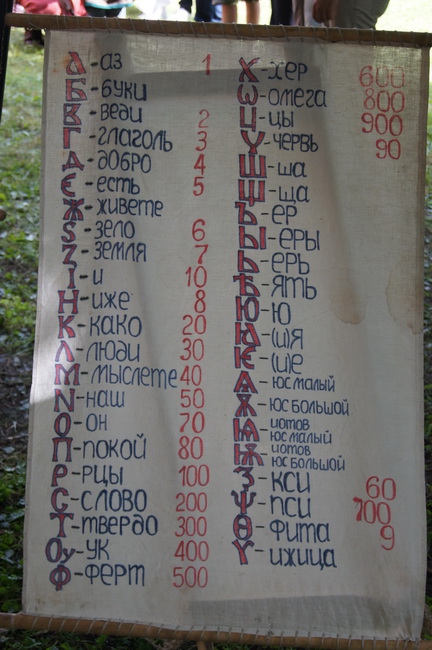 А - аз 1
Б - буки
В - веди 2
Г - глаголь 3
Д - добро 4
Є - есть 5
Ж - живете
Ѕ - зело 6
Z - земля 7
І - и 10
Н - иже 8
К - како 20
Л - люди 30
М - мыслете 40
N - наш 50
О - он 70
П - покой 80
Р - рцы 100
С - слово 200
Т - твердо 300
Оу - ук 400
Ф - ферт 500
Х - хер 600
Ѡ - омега 800
Ц - цы 900
Ч - червь 90
Ш - ша
Щ - ща
Ъ - ер
Ы - еры
Ь - ерь
Ѣ - ять
Ю - ю
Ꙗ - (и)я
Ѥ - (и)е
Ѧ - юс малый
Ѫ - юс большой
Ѩ - иотов юс малый
Ѭ - иотов юс большой
Ѯ - кси 60
Ѱ - пси 700
Ѳ - фита 9
Ѵ - ижица